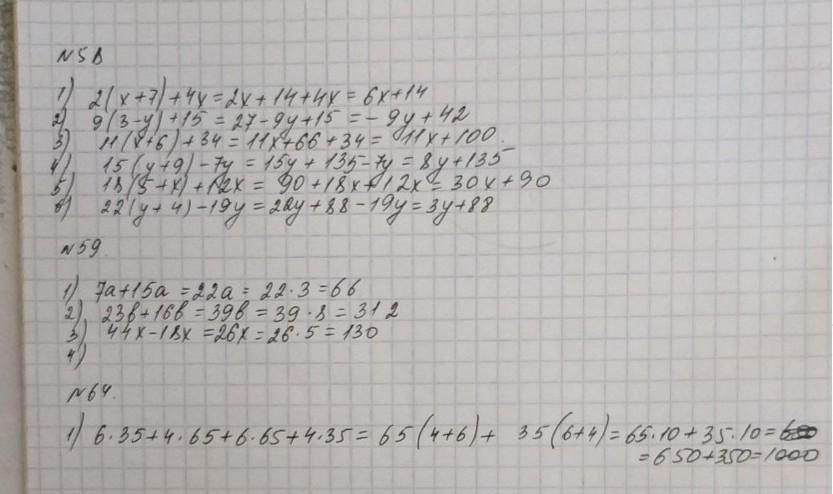 N58
1) 2(x+7)+4x=2x+14+4x=6x+14
2) 9(3-y)+15=27-9y+15=-9y+42
3) 11(x+6)+34=11x+66+34=11x+100.
4) 15(y+9)-7y=15y+135-7y=8y+135
5) 18(5+x)+12x=90+18x+12x=30x+90
6) 22(y+4)-19y=22y+88-19y=3y+88
N59.
1) 7a+15a=22a=22·3=66
2) 23b+16b=39b=39·8=312
3) 44x-18x=26x=26·5=130
4)
N64.
1) 6·35+4·65+6·65+4·35=65(4+6)+ 35(6+4)=65·10+35·10=
=650+350=1000